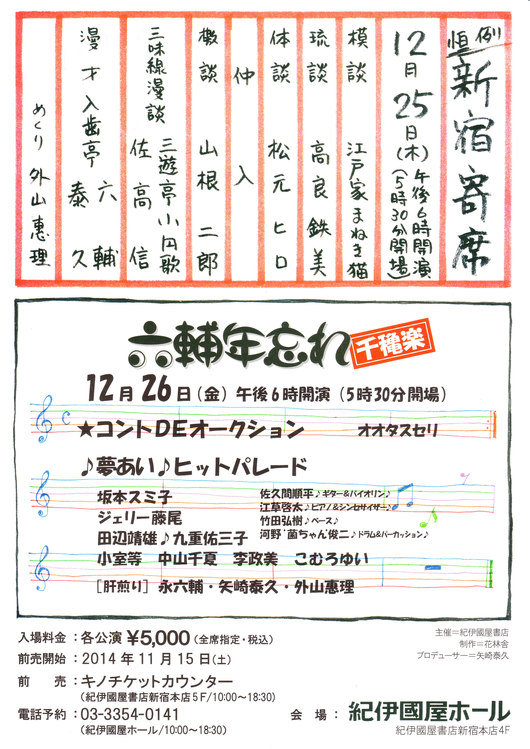 恒例
新宿寄席
12月25日(木)午後6時開演
(5時30分開場)
模談 江戸家まねき猫
琉談 高良鉄美
体談 松元ヒロ
仲入
撒談 山根二郎
三味線漫談 三遊亭小円歌
佐高信
漫才 入歯亭 六輔
泰久
めくり 外山惠理
六輔年忘れ 千穐楽
12月26日(金) 午後6時開演 (5時30分開場)
★コントDEオークション オオタスセリ
♪夢あい♪ヒットパレード
坂本スミ子
ジェリー藤尾
田辺靖雄♪九重佑三子
佐久間順平♪ギター&バイオリン♪
江草啓太♪ピアノ&シンセサイザー♪
竹田弘樹♪ベース♪
河野“菌ちゃん”俊二♪ドラム&パーカッション♪
小室等 中山千夏 李政美 こむろゆい
[肝煎り] 永六輔・矢崎泰久・外山惠理
入場料金:各公演 ¥5,000(全席指定・税込)
前売開始:2014年11月15日(土)
前売:キノチケットカウンター
(紀伊國屋書店新宿本店5F/10:00~18:30)
電話予約:03-3354-0141
(紀伊國屋ホール/10:00~18:30)
主催=紀伊國屋書店
制作=花林舎
プロデューサー=矢崎泰久
会場:紀伊國屋ホール
紀伊國屋書店新宿本店4F